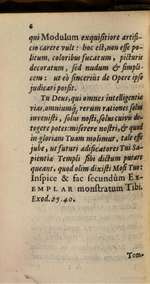 6
qui Modulum exquisitiore artifi-
cio carere vult: hoc est, non esse po-
litum, coloribus fucatum, picturis
decoratum, sed nudum & simpli-
cem: ut eò sincerius de Opere ipso
judicari possit.
Tu Deus, qui omnes intelligentiæ
vias, omniumq; rerum rationes solus
invenisti, solus nosti, solus cuivis de-
tegere potes: miserere nostri, & quod
in gloriam Tuam molimur, tale esse
jube, ut futuri ædificatores Tui Sa-
pientiæ Templi sibi dictum putare
queant, quod olim dixisti Mosi Tuo:
Inspice & fac secundùm Ex-
EMPLAR monstratum Tibi.
Exod. 25. 40.
Tom-